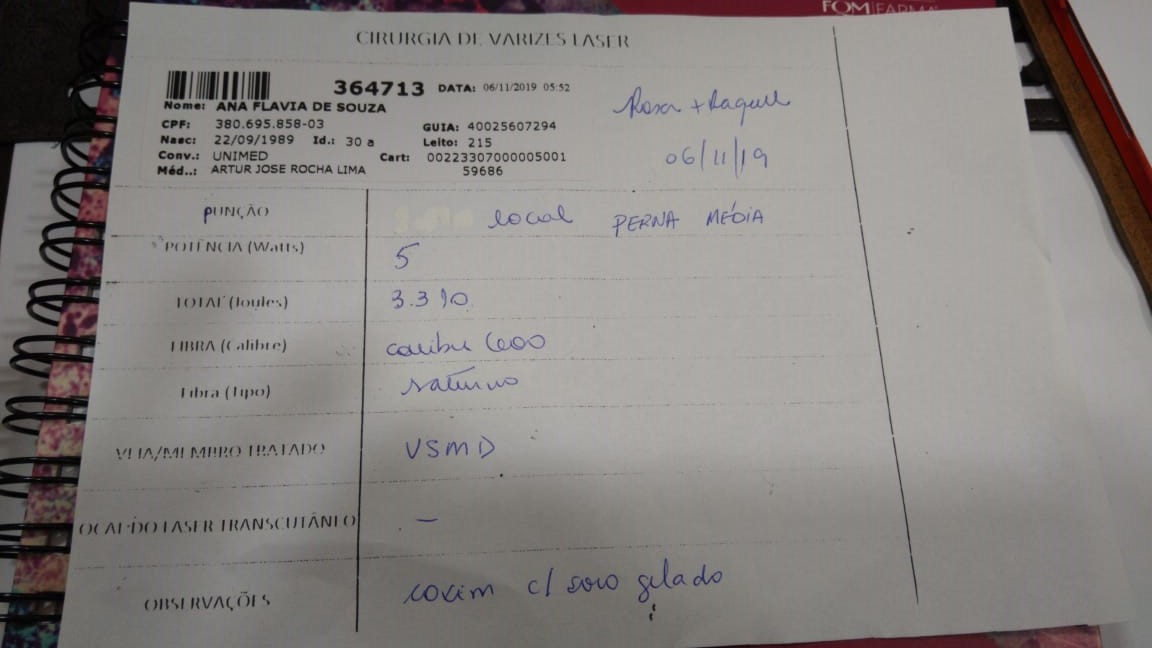 FQM FARMA
CIRURGIA DE VARIZES LASER
364713 DATA: 06/11/2019 05:52
Nome: ANA FLAVIA DE SOUZA
CPF: 380.695.858-03 GUIA: 40025607294
Nasc: 22/09/1989 Id.: 30 a Leito: 215
Conv.: UNIMED Cart: 00223307000005001
Méd..: ARTUR JOSE ROCHA LIMA 59686
Rosa + Raquel
06/11/19
PUNÇÃO local PERNA MÉDIA
POTÊNCIA (Watts) 5
TOTAL (Joules) 3.310
FIBRA (Calibre) calibre 600
Fibra (Tipo) saturno
VEIA/MEMBRO TRATADO VSMD
OCAL DO LASER TRANSCUTÂNEO —
OBSERVAÇÕES coxim c/ soro gelado